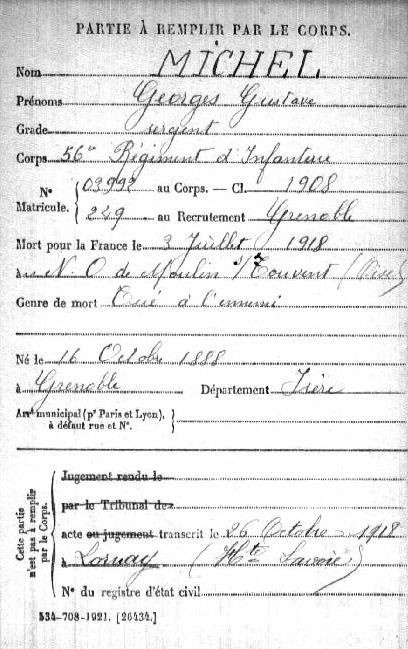 PARTIE À REMPLIR PAR LE CORPS.
Nom MICHEL
Prénoms Georges Gustave
Grade sergent
Corps 56e Régiment d'Infanterie
Nº Matricule. { 03992 au Corps. — Cl. 1908
229 au Recrutement Grenoble
Mort pour la France le 3 Juillet 1918
au N. O de Moulin s/s Touvent (Oise)
Genre de mort Tué à l'ennemi
Né le 16 Octobre 1888
à Grenoble Département Isère
Arrt municipal (pr Paris et Lyon), à défaut rue et Nº. }
Cette partie n'est pas à remplir par le Corps.
Jugement rendu le
par le Tribunal de
acte ou jugement transcrit le 26 Octobre 1918
à Lornay (Hte Savoie)
Nº du registre d'état civil
534-708-1921. [26434.]